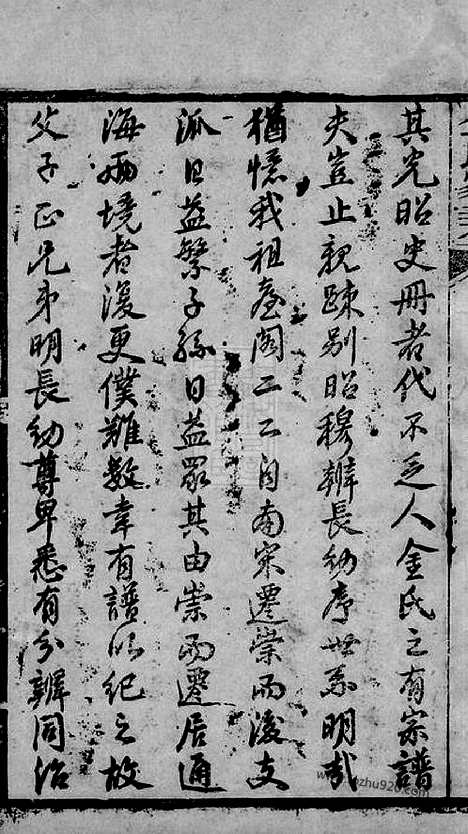 其光昭史冊者代不乏人金氏之有宗譜
夫豈止親疎别昭穆辨長幼序世系明哉
猶憶我祖臺閣二二自南宋遷崇而後支
派日益繁子孫日益眾其由崇而遷居通
海兩境者湲更僕難數幸有譜以紀之故
父子正兄弟明長幼尊卑悉有分辨同治
www.zhu920.com